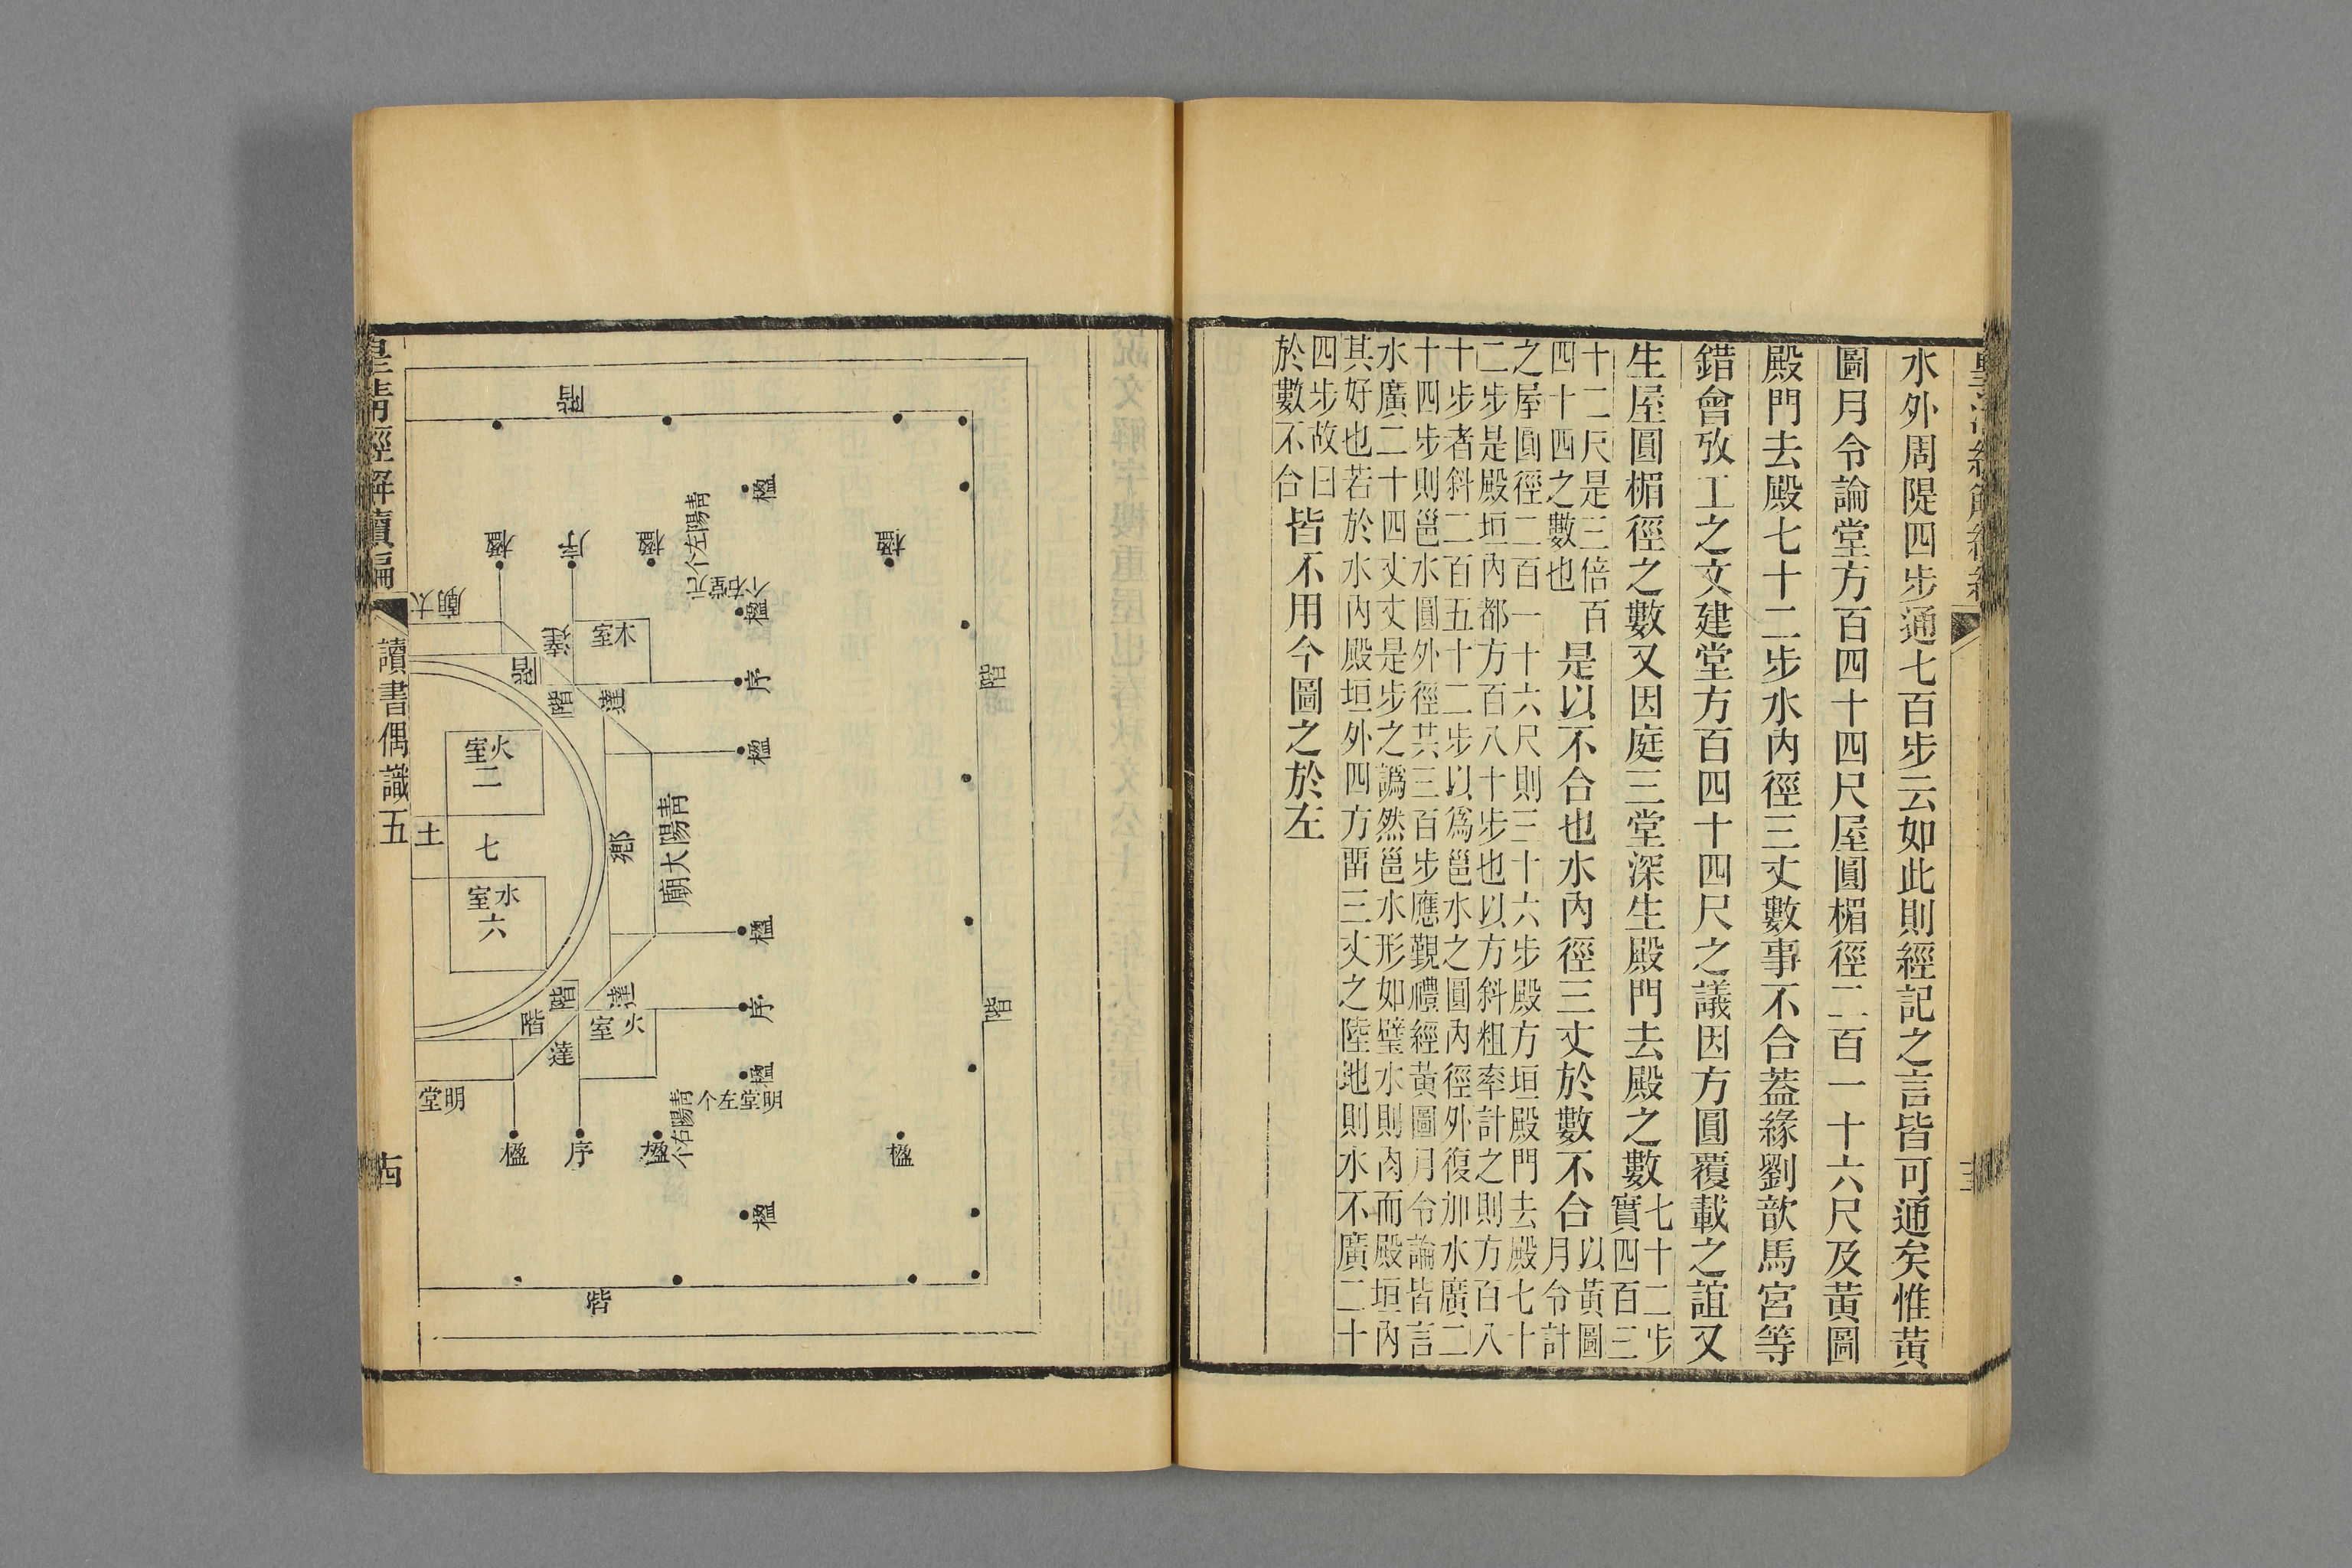 水外周隄四步通七百步云如此則經記之言皆可通矣惟黃
圖月令論堂方百四十四尺屋圓楣徑二百一十六尺及黃圖
殿門去殿七十二步水內徑三丈數事不合蓋緣劉歆馬宮等
錯會攷工之文建堂方百四十四尺之議因方圓覆載之誼又
生屋圓楣徑之數又因庭三堂深生殿門去殿之數
七十二步
實四百三
十二尺是三倍百
四十四之數也
是以不合也水內徑三丈於數不合
以黃圖
月令計
之屋圓徑二百一十六尺則三十六步殿方垣殿門去殿七十
二步是殿垣內都方百八十步也以方斜粗率計之則方百八
十步者斜二百五十二步以爲邕水之圓內徑外復加水廣二
十四步則邕水圓外徑共三百步應觀禮經黃圖月令論皆言
水廣二十四丈丈是步之譌然邕水形如璧水則內而殿垣內
其好也若於水內殿垣外四方畱三丈之陸地則水不廣二十
四步故曰
於數不合
皆不用今圖之於左
皇清經解續編
讀書偶識五
古
階
楹
楹
序
楹
楹
青陽左个
元堂右个
太廟
楹
達
木室
階
階
達
序
階
楹
火室
二
土
七
水室
六
鄉
青陽大廟
楹
階
階
達
火室
達
序
階
楹
明堂
青陽右个
明堂左个
楹
序
楹
楹
楹
階